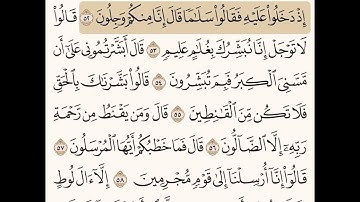 إِذْ دَخَلُوا۟ عَلَيْهِ فَقَالُوا۟ سَلَـٰمًا قَالَ إِنَّا مِنكُمْ وَجِلُونَ ٥٢ قَالُوا۟
لَا تَوْجَلْ إِنَّا نُبَشِّرُكَ بِغُلَـٰمٍ عَلِيمٍ ٥٣ قَالَ أَبَشَّرْتُمُونِى عَلَىٰٓ أَن
مَّسَّنِىَ ٱلْكِبَرُ فَبِمَ تُبَشِّرُونَ ٥٤ قَالُوا۟ بَشَّرْنَـٰكَ بِٱلْحَقِّ
فَلَا تَكُن مِّنَ ٱلْقَـٰنِطِينَ ٥٥ قَالَ وَمَن يَقْنَطُ مِن رَّحْمَةِ
رَبِّهِۦٓ إِلَّا ٱلضَّآلُّونَ ٥٦ قَالَ فَمَا خَطْبُكُمْ أَيُّهَا ٱلْمُرْسَلُونَ ٥٧
قَالُوٓا۟ إِنَّآ أُرْسِلْنَآ إِلَىٰ قَوْمٍ مُّجْرِمِينَ ٥٨ إِلَّآ ءَالَ لُوطٍ